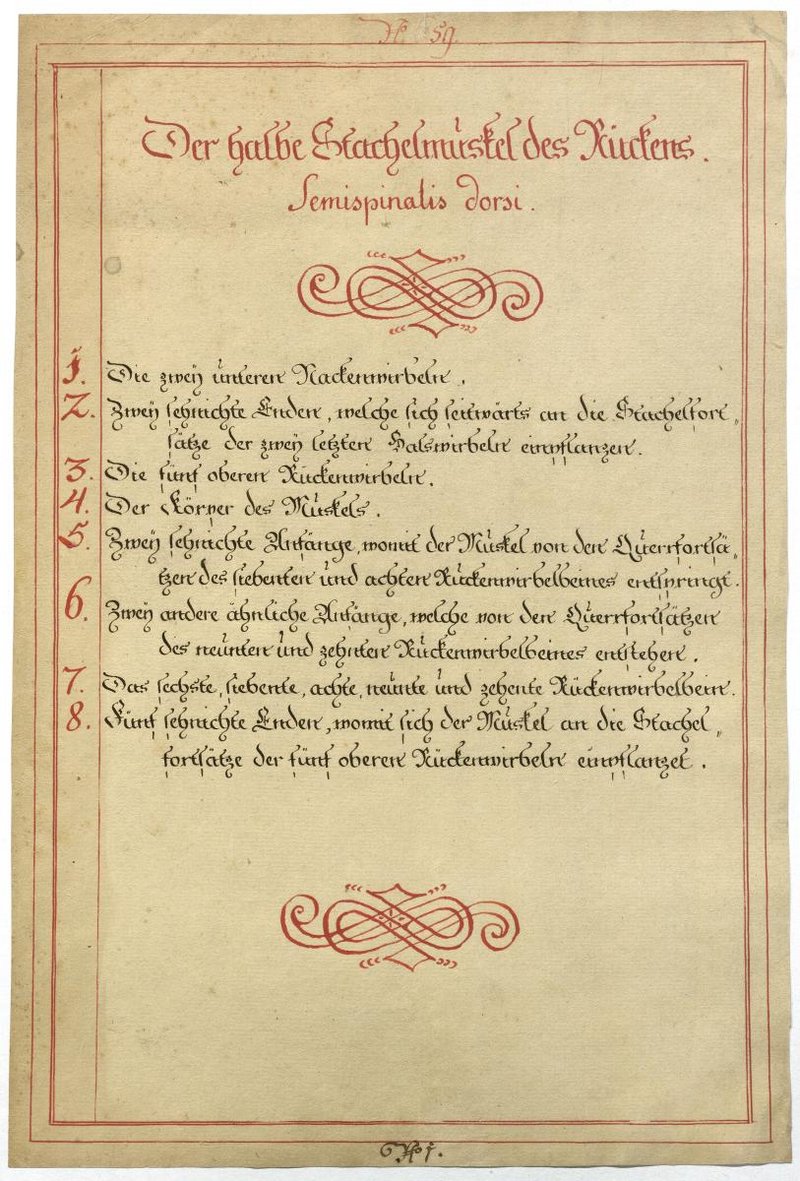 N. 59
Der halbe Stachelmuskel des Rückens.
Semispinalis dorsi.
1. Die zwey unteren Nackenwirbeln.
2. Zwey sehnichte Enden, welche sich seitwärts an die Stachelfort„
sätze der zwey letzten Halswirbeln einpflanzen.
3. Die fünf oberen Rückenwirbeln.
4. Der Körper des Muskels.
5. Zwey sehnichte Anfänge, womit der Muskel von den Querrfortsä„
tzen des siebenten und achten Rückenwirbelbeines entspringt.
6. Zwey andere ähnliche Anfänge, welche von den Querrfortsätzen
des neunten und zehnten Rückenwirbelbeines entstehen.
7. Das sechste, siebente, achte, neunte und zehente Rückenwirbelbein.
8. Fünf sehnichte Enden, womit sich der Muskel an die Stachel„
fortsätze der fünf oberen Rückenwirbeln einpflanzet.